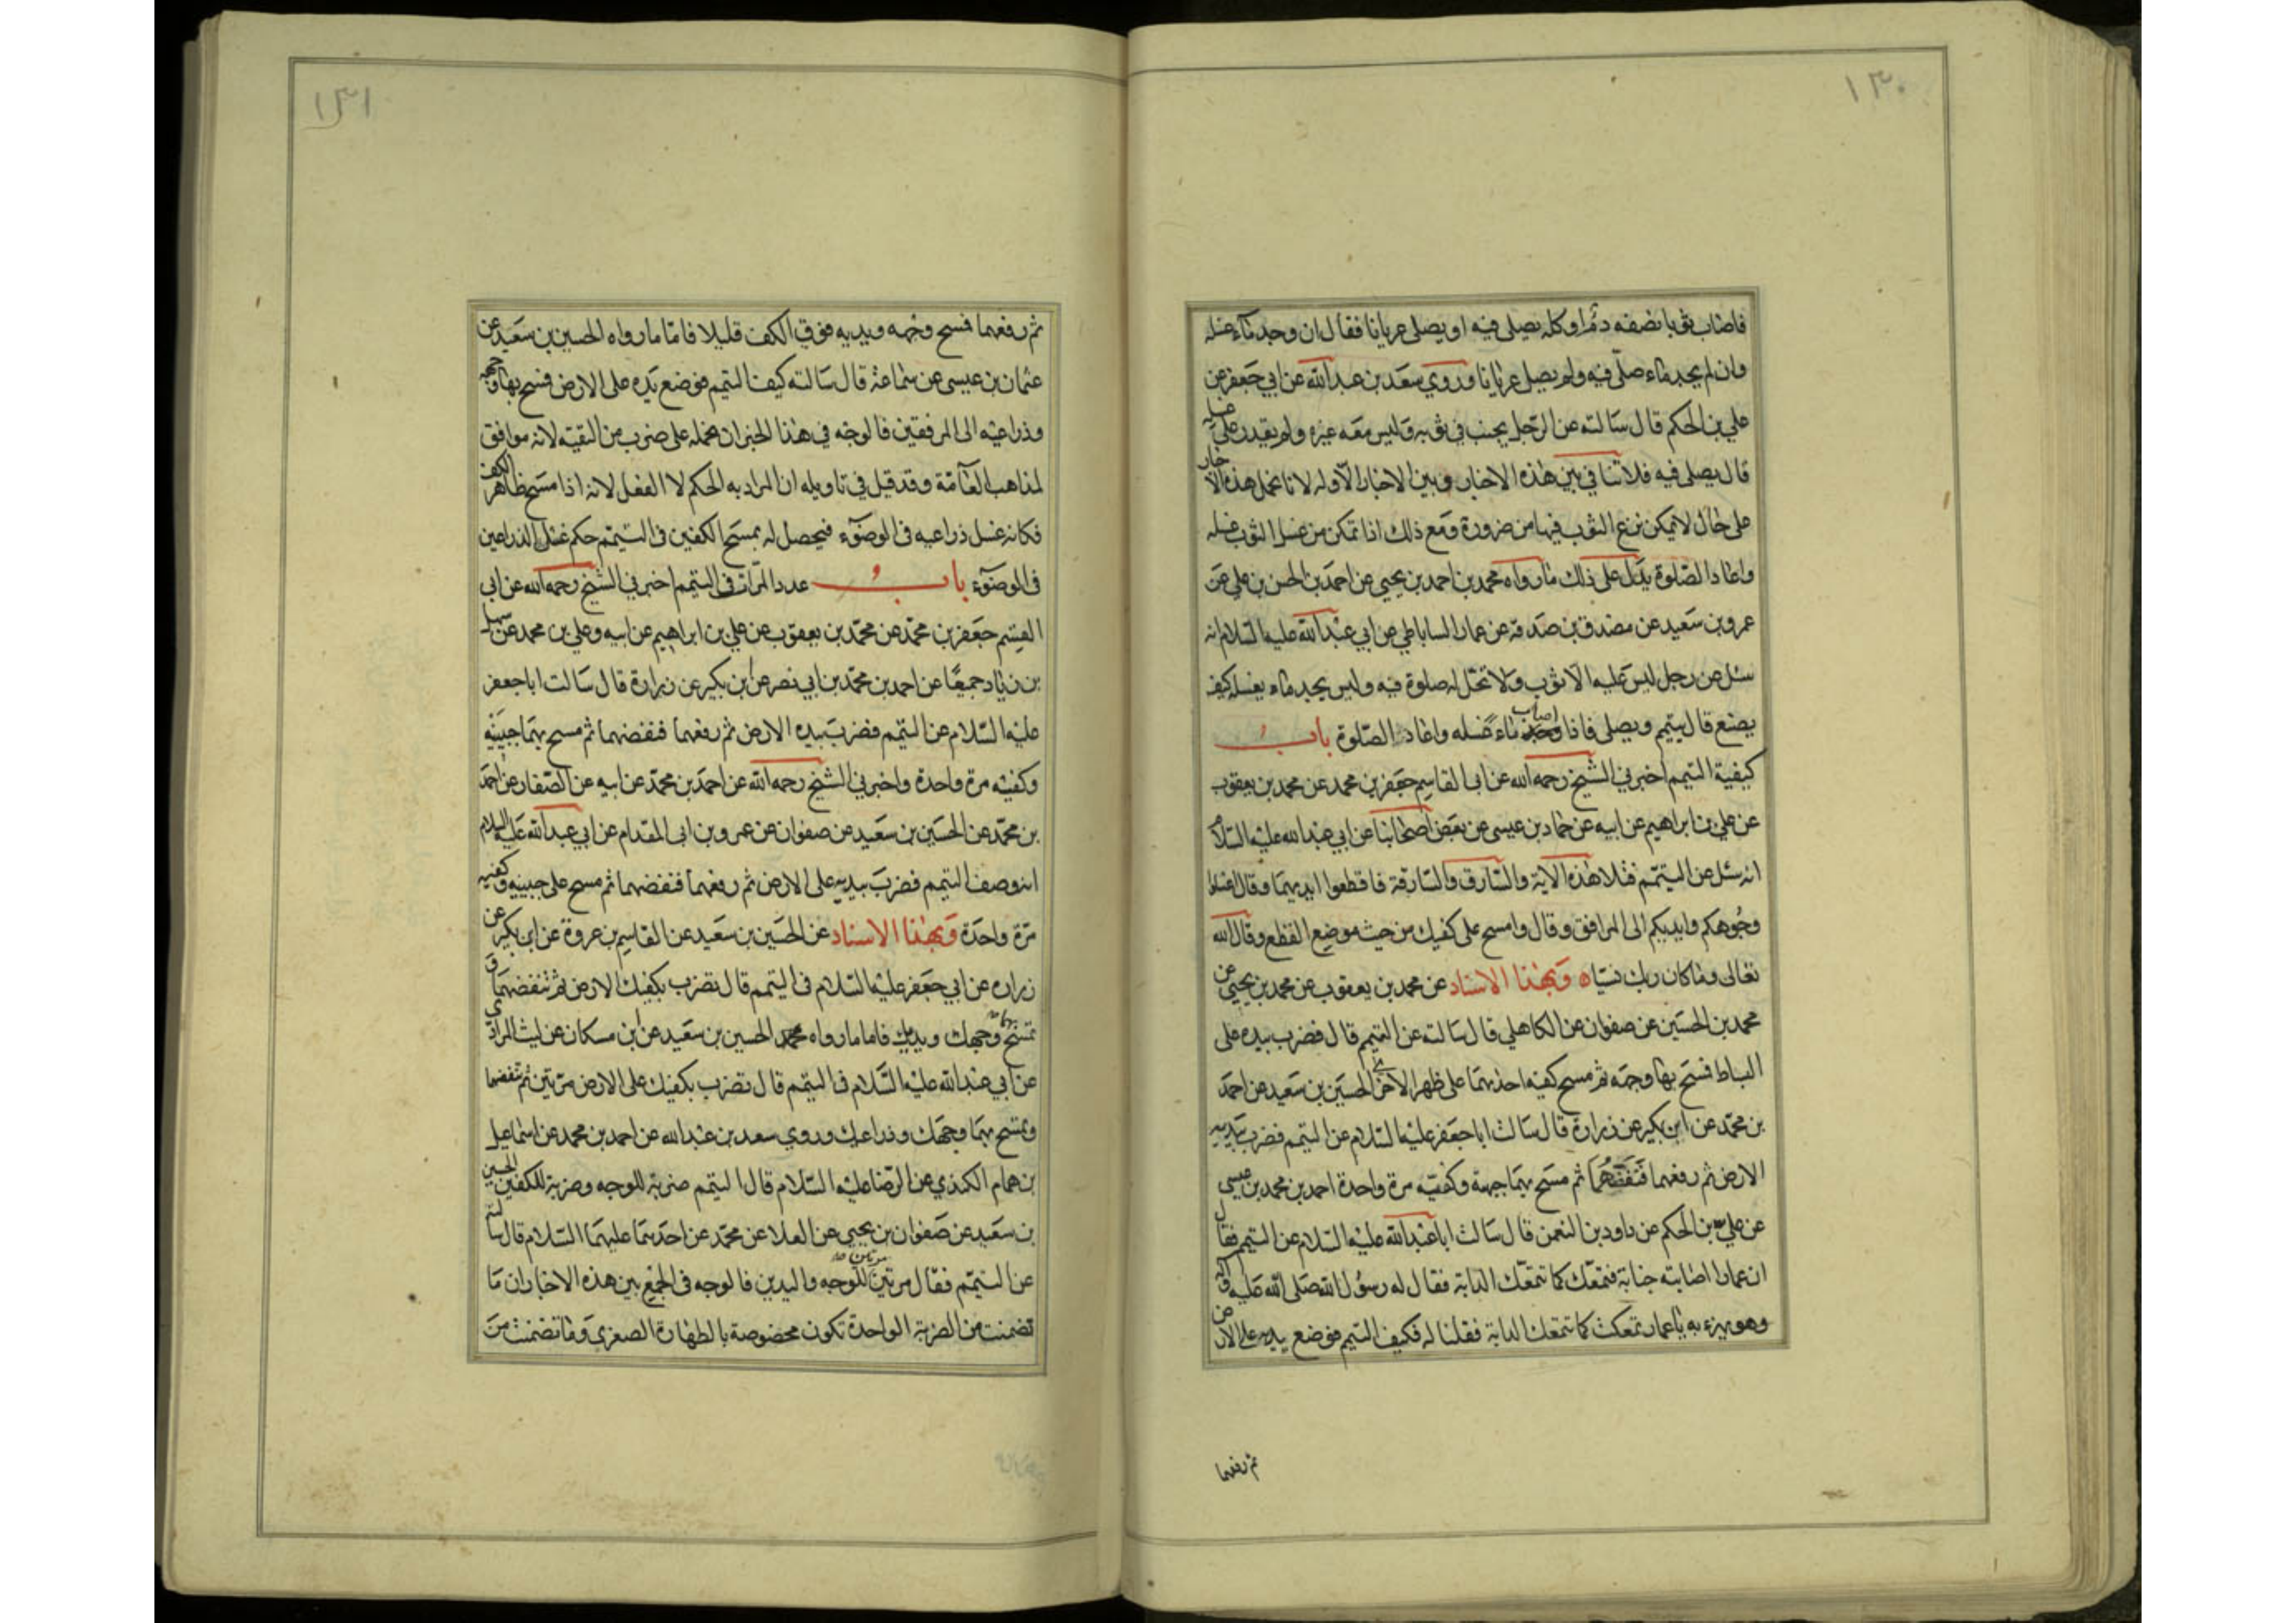 ١٣٠
فاصاب ثوبا نصفه دم او كله يصلى فيه او يصلى عريانا فقال ان وجد ماء غسله
وان لم يجد ماء صلّى فيه ولم يصل عريانا وروي سعد بن عبد الله عن ابي جعفر عن
علي بن الحكم قال سالته عن الرّجل يجنب في ثوبه وليس معه غيره ولم يقدر على غسله
قال يصلى فيه فلا تنافي بين هذه الاخبار وبين الاخبار الاوله لانا نحمل هذه الاخبار
على حال لا يمكن نزع الثوب فيها من ضرورة ومع ذلك اذا تمكن من غسل الثوب غسله
واعاد الصّلوة يدل على ذلك ما رواه محمد بن احمد بن يحيى عن احمد بن الحسن بن علي عن
عمرو بن سعيد عن مصدق بن صدقة عن عمار الساباطي عن ابي عبد الله عليه السّلام انه
سئل عن رجل ليس عليه الا ثوب ولا تحل له صلوة فيه وليس يجد ماء يغسله كيف
يصنع قال يتيمم ويصلى فاذا اصاب ماء غسله واعاد الصّلوة باب
كيفية التيمم اخبرني الشيخ رحمه الله عن ابى القاسم جعفر بن محمد عن محمد بن يعقوب
عن علي بن ابراهيم عن ابيه عن حماد بن عيسى عن بعض اصحابنا عن ابي عبد الله عليه السّلام
انه سئل عن التيمّم فتلا هذه الاية والسّارق والسّارقة فاقطعوا ايديهما وقال اغسلوا
وجوهكم وايديكم الى المرافق وقال وامسح على كفيك من حيث موضع القطع وقال الله
تعالى وما كان ربك نسيّاه وبهذا الاسناد عن محمد بن يعقوب عن محمد بن يحيى عن
محمد بن الحسين عن صفوان عن الكاهلي قال سالته عن التيمم قال فضرب بيده على
البساط فمسح بها وجهه ثم مسح كفيه احديهما على ظهر الاخرى الحسين بن سعيد عن احمد
بن محمّد عن ابن بكير عن زرارة قال سالت ابا جعفر عليه السّلام عن التيمم فضرب بيديه
الارض ثم رفعهما فنفضهما ثم مسح بهما جبهته وكفيه مرة واحدة احمد بن محمد بن عيسى
عن علي بن الحكم عن داود بن النعمن قال سالت ابا عبد الله عليه السّلام عن التيمم فقال
ان عمارا اصابته جنابة فتمعّك كما تتمعّك الدابة فقال له رسول الله صلى الله عليه وآله
وهو يهزء به يا عمار تمعكت كما تتمعك الدابة فقلنا له فكيف التيمم فوضع يديه على الارض
ثم رفعهما
١٣١
ثم رفعهما فمسح وجهه ويديه فوق الكف قليلا فامّا ما رواه الحسين بن سعيد عن
عثمان بن عيسى عن سماعة قال سالته كيف التيمم فوضع يده على الارض فمسح بها وجهه
وذراعيه الى المرفقين فالوجه في هذا الخبر ان نحمله على ضرب من التقية لانه موافق
لمذاهب العامّة وقد قيل في تاويله ان المراد به الحكم لا الفعل لانه اذا مسح ظاهر الكف
فكانه غسل ذراعيه في الوضوء فيحصل له بمسح الكفين في التيمّم حكم غسل الذراعين
في الوضوء باب عدد المرّات في التيمم اخبرني الشيخ رحمه الله عن ابي
القسم جعفر بن محمّد عن محمّد بن يعقوب عن علي بن ابراهيم عن ابيه وعلي بن محمد عن سهل
بن زياد جميعًا عن احمد بن محمّد بن ابي نصر عن ابن بكير عن زرارة قال سالت ابا جعفر
عليه السّلام عن التيمم فضرب بيده الارض ثم رفعهما فنفضهما ثم مسح بهما جبينيه
وكفيه مرة واحدة واخبرني الشيخ رحمه الله عن احمد بن محمّد عن ابيه عن الصّفار عن احمد
بن محمّد عن الحسين بن سعيد عن صفوان عن عمرو بن ابى المقدام عن ابي عبد الله عليه السلام
انه وصف التيمم فضرب بيديه على الارض ثم رفعهما فنفضهما ثم مسح على جبينيه وكفيه
مرّة واحدة وبهذا الاسناد عن الحسين بن سعيد عن القاسم بن عروة عن ابن بكير عن
زراره عن ابي جعفر عليه السّلام في التيمم قال تضرب بكفيك الارض ثم تنفضهما و
تمسح بهما وجهك ويديك فاما ما رواه الحسين بن سعيد عن ابن مسكان عن ليث المرادي
عن ابي عبد الله عليه السّلام في التيمم قال تضرب بكفيك على الارض مرّتين ثم تنفضهما
وتمسح بهما وجهك وذراعيك وروي سعد بن عبد الله عن احمد بن محمد عن اسماعيل
بن همام الكندي عن الرضا عليه السّلام قال التيمم ضربة للوجه وضربة للكفين الحسين
بن سعيد عن صفوان بن يحيى عن العلا عن محمّد عن احدهما عليهما السّلام قال سالته
عن التيمّم فقال مرتين مرتين للوجه واليدين فالوجه في الجمع بين هذه الاخبار ان ما
تضمنت من الضربة الواحدة تكون مخصوصة بالطهارة الصغرى وما تضمنت من